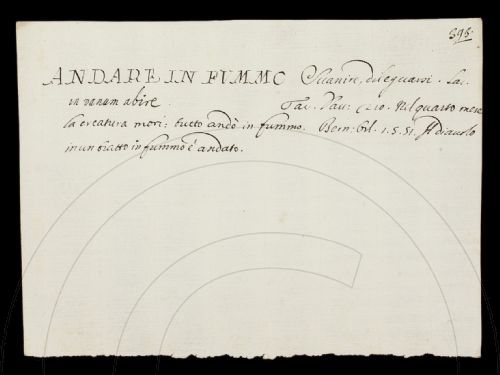 595.
ANDARE IN FUMMO Svanire, dileguarsi. Lat.
in vanum abire. Tav. Nel quarto mese
la creatura morì: tutto andò in fummo. Bern: Orl. 1.5.51. Il diavolo
in un tratto in fummo è andato.